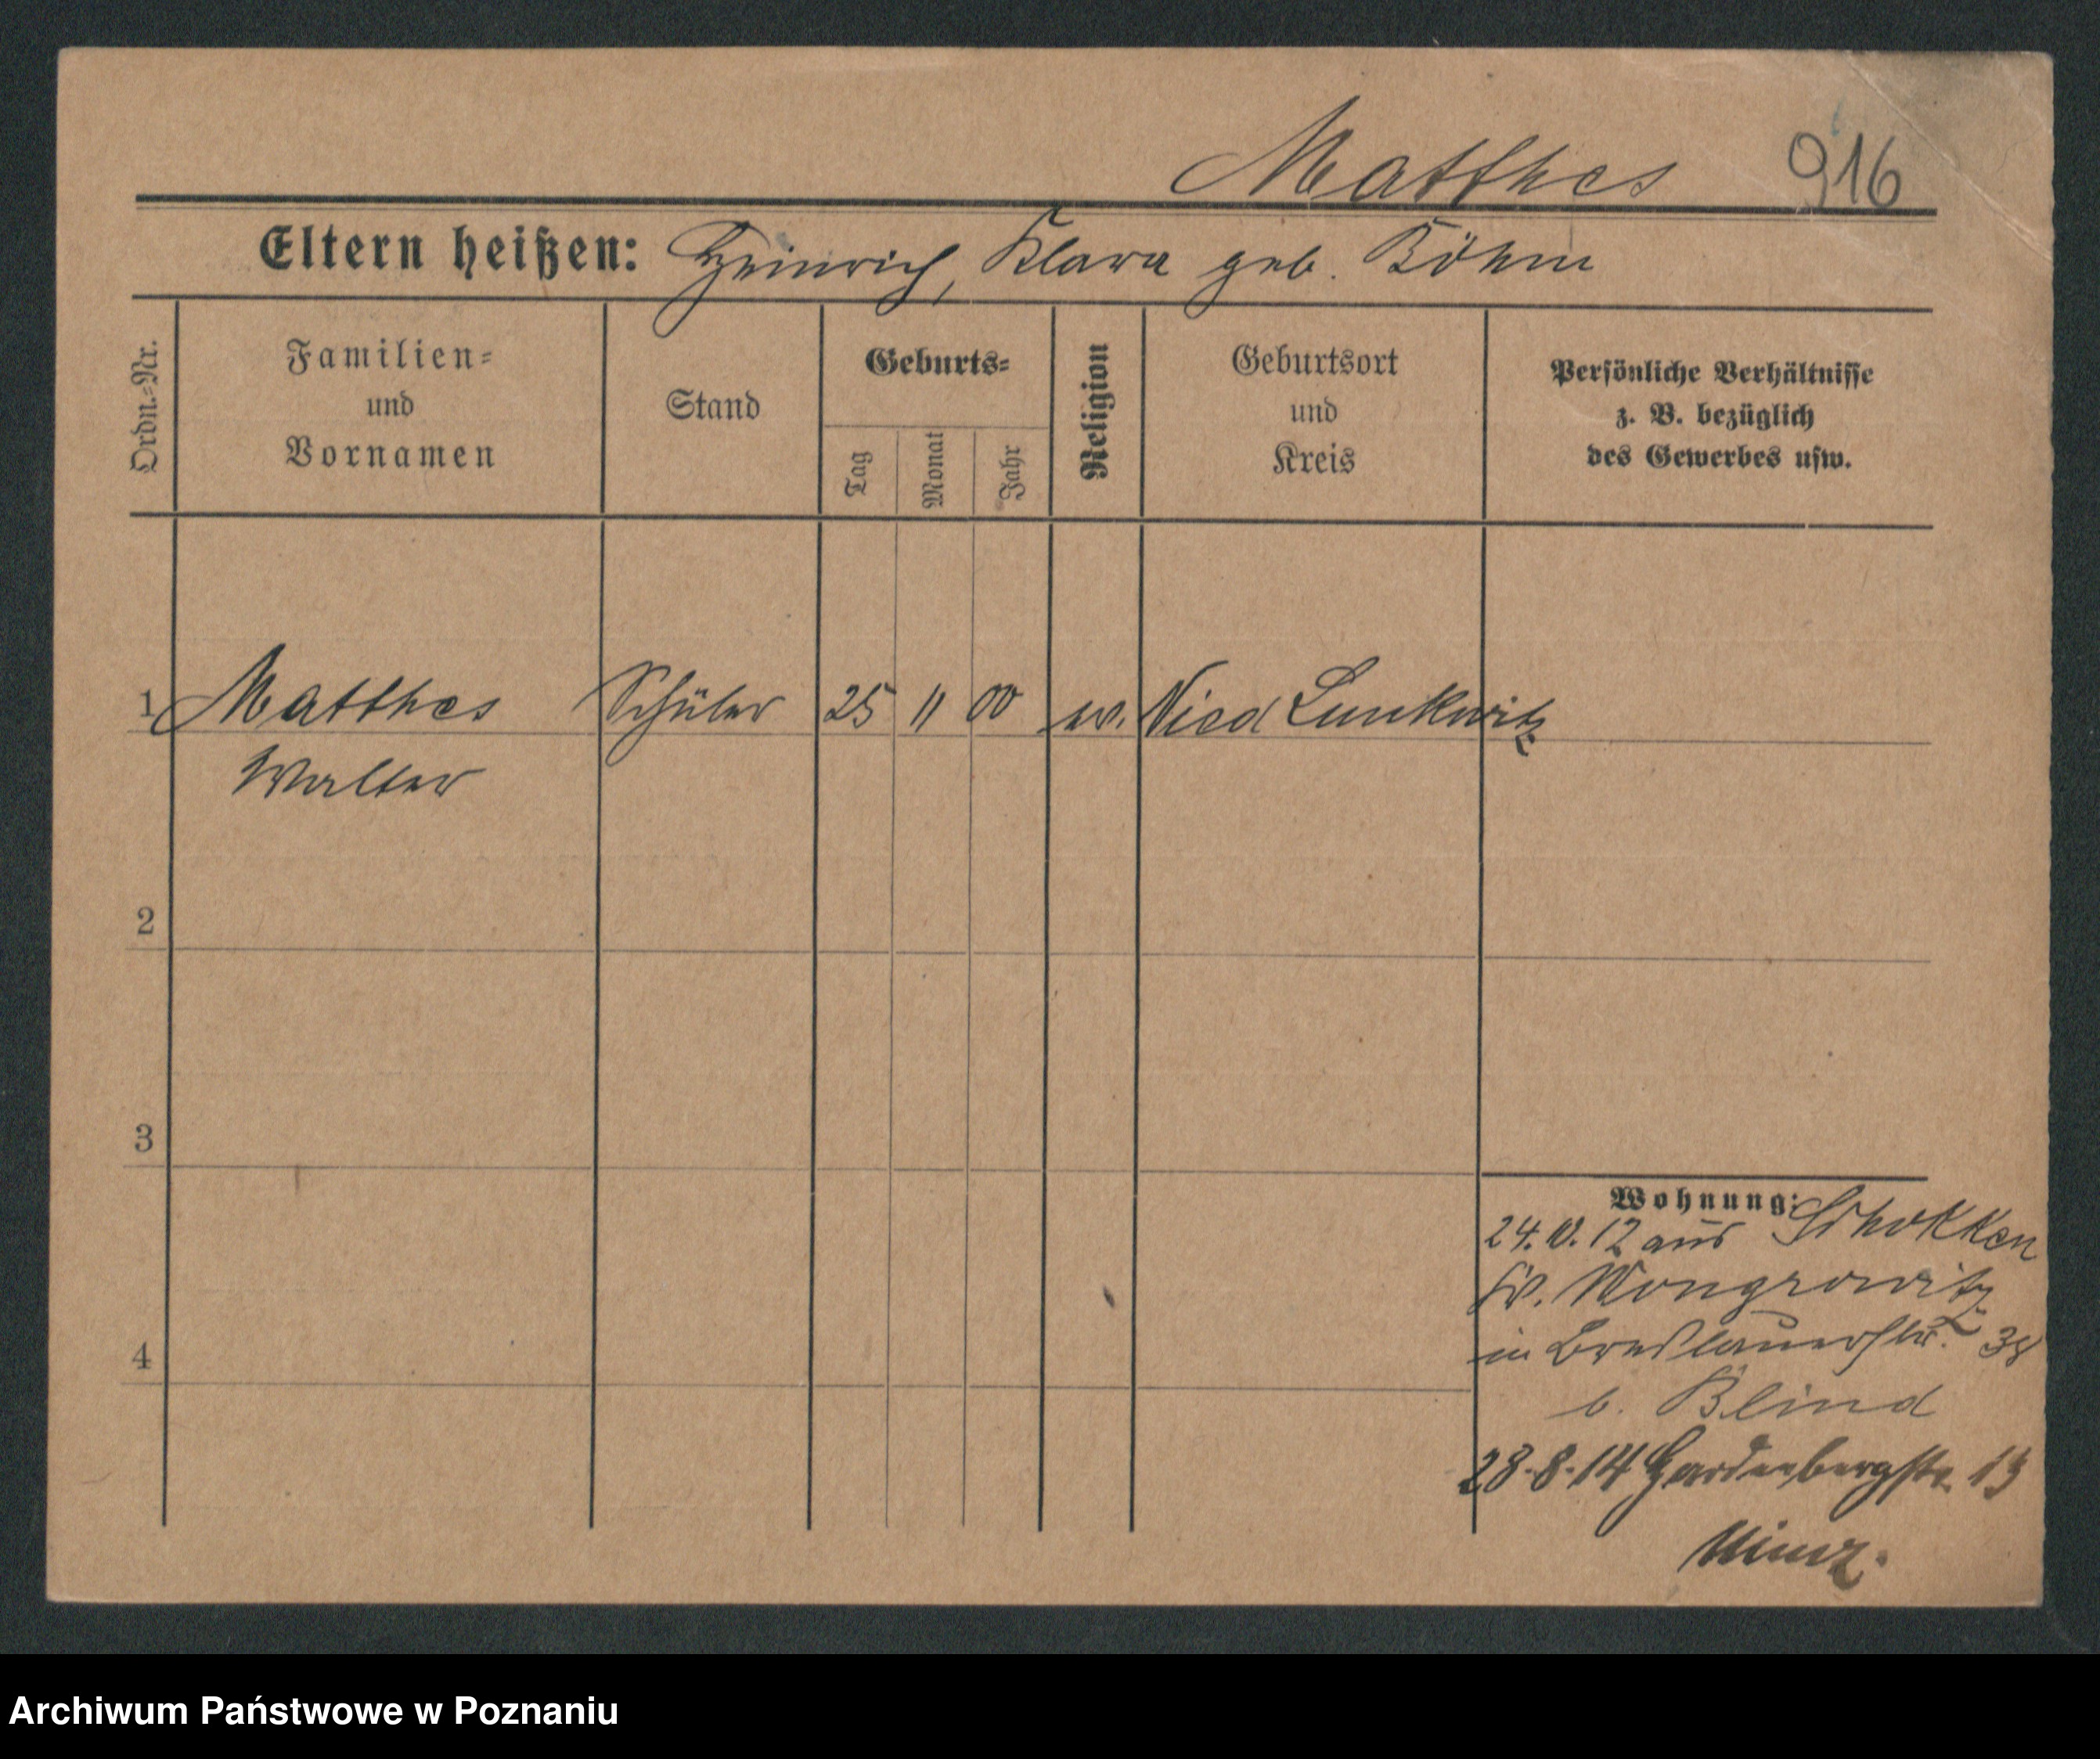 Matthes 916
Eltern heißen: Heinrich, Klara geb. Böhm
Ordn.=Nr.
Familien=
und
Vornamen
Stand
Geburts=
Tag
Monat
Jahr
Religion
Geburtsort
und
Kreis
Persönliche Verhältnisse
z. B. bezüglich
des Gewerbes usw.
1 Matthes Schüler 25 11 00 ev. Nied Lunkwitz
Walter
2
3
4
Wohnung:
24. 10. 12 aus Schokken
Wongrowitz
in Breslauerstr. 38
b. Blind
28. 8. 14 Hardenbergstr. 13
Archiwum Państwowe w Poznaniu